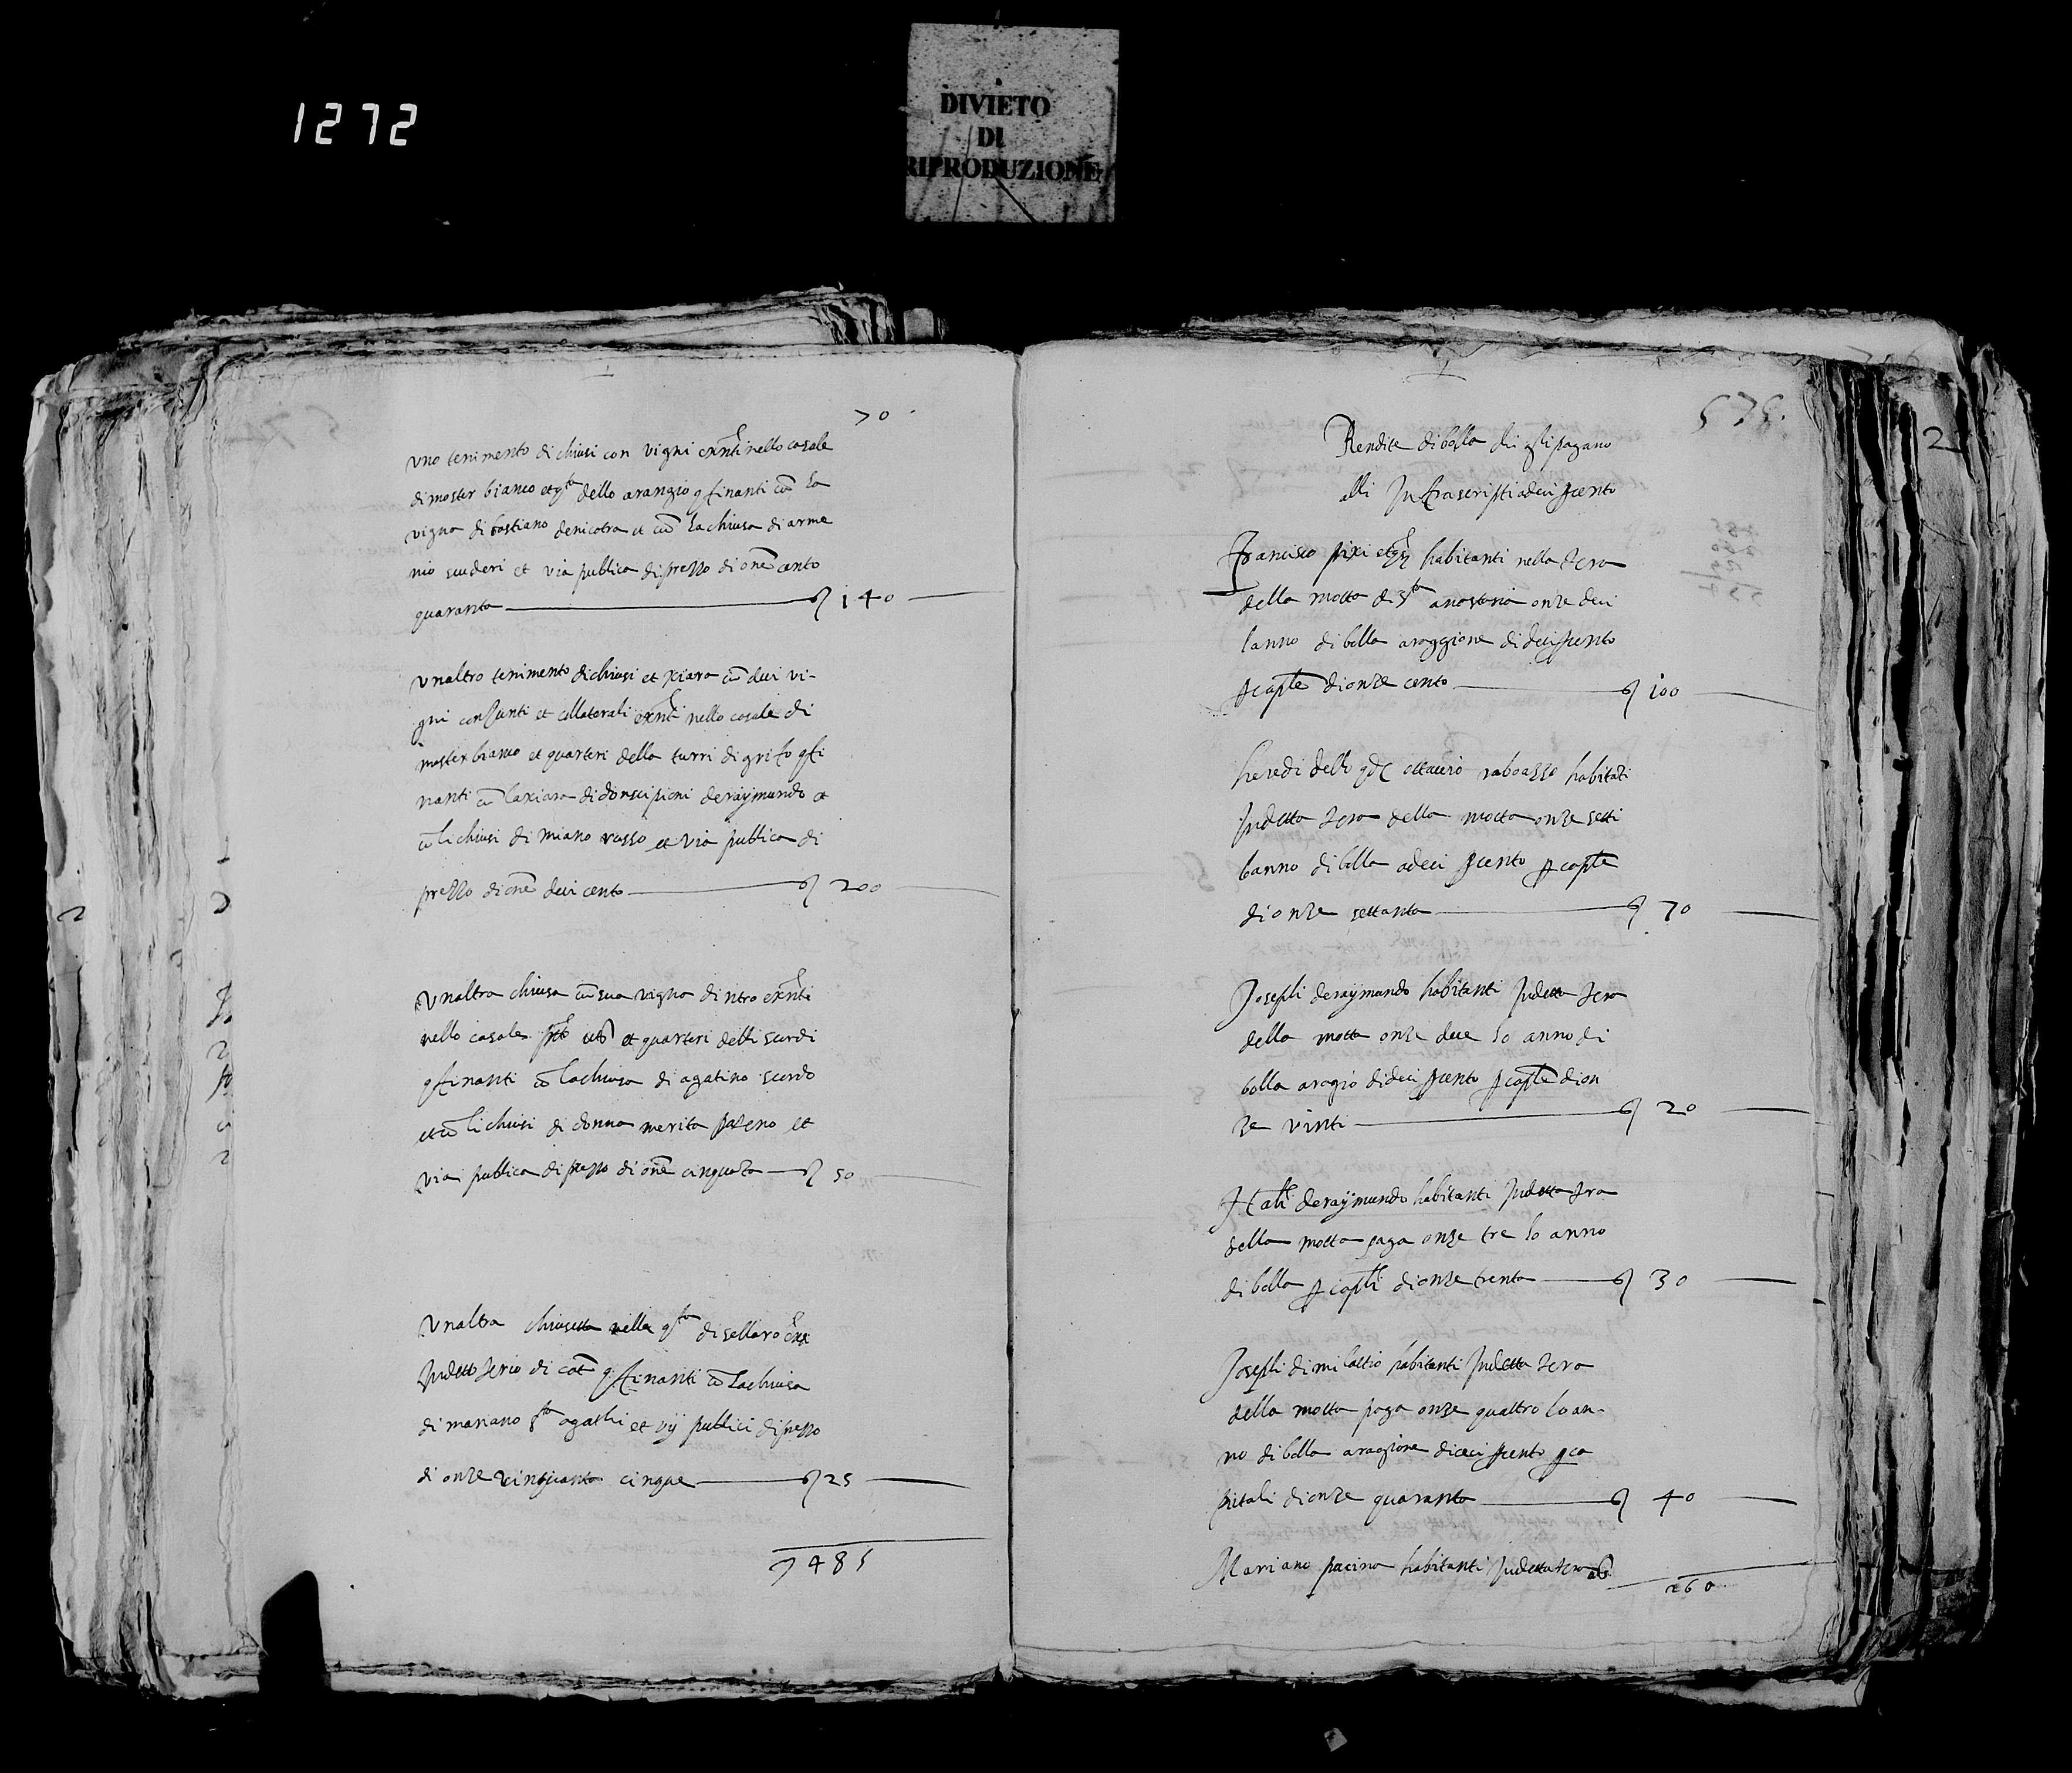 1272
DIVIETO
DI
RIPRODUZIONE
70
uno tenimento di chiusi con vigni exnti nello casale
di mosterbianco et qta dello arangio gfinanti cū la
vigna di bastiano denicotra et cū la chiusa di arme
nio scuderi et via publica di prezzo di onze cento
quaranta 140
unaltro tenimento di chiusi et xiara cū dui vi-
gni conjunti et collaterali exnti nello casale di
mosterbianco et quarteri della turri di grifo gfi
nanti cū la xiara di don scipioni deraymundo et
cū li chiusi di miano russo et via publica di
prezzo di onze dui cento 200
unaltra chiusa cū sua vigna dintro exnti
nello casale et quarteri delli scurdi
gfinanti cō la chiusa di agatino scordo
et cō li chiusi di donna merita paterno et
via publica di prezzo di onze cinquāta 50
unaltra chiusetta nella qta di sellaro
Indetto terio di cata gfinanti cō la chiusa
di mariano sta agathi et vij publici di prezzo
di onze cinque 25
7485
575.
2
Rendite di bolla di qli pagano
alli Infrascripti a deci p cento
Francisco pixi habitanti nella terra
della motta di sta anastasia onze deci
lanno di bolla a raggione di deci p cento
p caple di onze cento 100
heredi dello qda ottavio raboazzo habitāti
Indetta terra della motta onze setti
lanno di bolla a deci p cento p caple
di onze settanta 70
Josephi deraymundo habitanti Indetta terra
della motta onze due lo anno di
bolla a ragio di deci p cento p caple di on
ze vinti 20
deraymundo habitanti Indetta terra
della motta paga onze tre lo anno
di bolla p capli di onze trenta 30
Josephi di milattio habitanti Indetta terra
della motta paga onze quattro lo an-
no di bolla a ragione di deci p cento p ca
pitali di onze quaranta 40
Mariano pacino habitanti Indetta terra
260